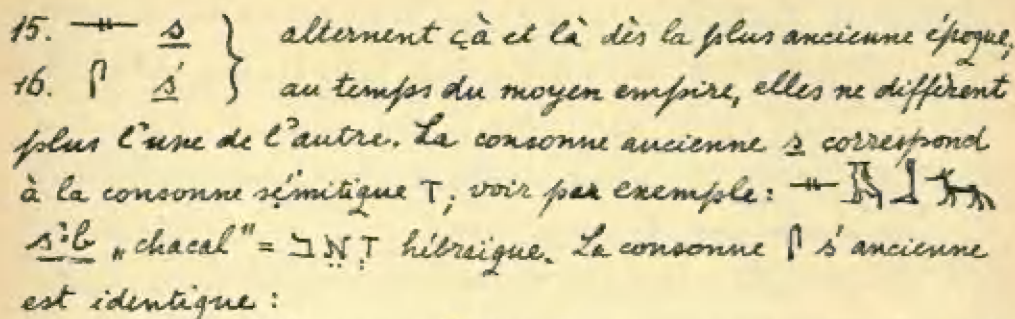 15. 𓊃 s } alternent çà et là dès la plus ancienne époque;
16. 𓋴 ś } au temps du moyen empire, elles ne diffèrent
plus l'une de l'autre. La consonne ancienne s correspond
à la consonne sémitique ז; voir par exemple: 𓊃
sꜣb „chacal" = זְאֵב hébraïque. La consonne 𓋴 ś ancienne
est identique: